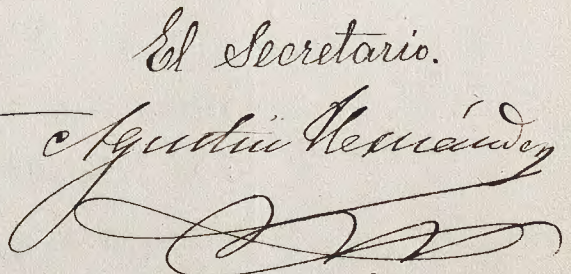 El Secretario.
Agustin Hernández